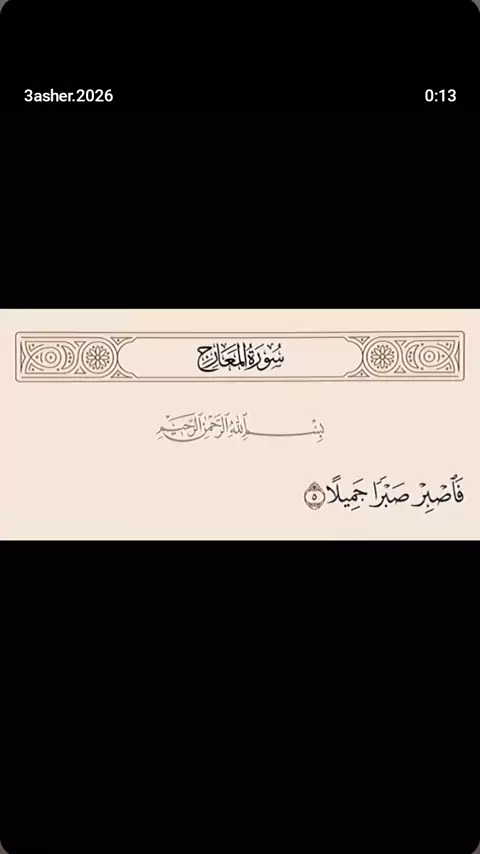 3asher.2026
0:13
سُورَةُ المَعَارِجِ
بِسْمِ اللَّهِ الرَّحْمَٰنِ الرَّحِيمِ
فَاصْبِرْ صَبْرًا جَمِيلًا ٥